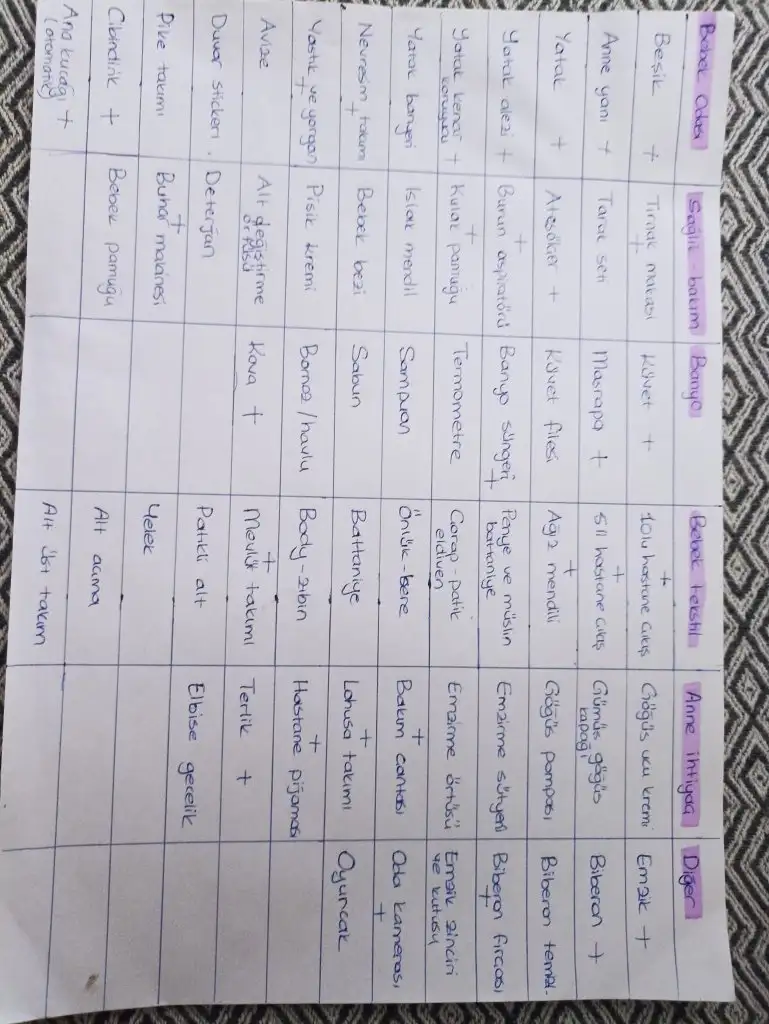 Bebek Odası Sağlık-bakım Banyo Bebek tekstil Anne ihtiyacı Diğer
Beşik + Tırnak makası + Küvet + 10lu hastane çıkış + Göğüs ucu kremi Emzik +
Anne yanı + Tarak seti Maşrapa + 5li hastane çıkış + Gümüş göğüs kapağı Biberon +
Yatak + Ateşölçer + Küvet filesi Ağız mendili + Göğüs pompası Biberon temiz.
Yatak alezi + Burun aspiratörü + Banyo süngeri + Penye ve müslin battaniye Emzirme sütyeni Biberon fırçası +
Yatak kenar koruyucu + Kulak pamuğu + Termometre Çorap-patik eldiven Emzirme örtüsü Emzik zinciri ve kutusu
Yatak bariyeri Islak mendil Şampuan Önlük-bere Bakım çantası + Oda kamerası +
Nevresim takımı + Bebek bezi Sabun Battaniye Lohusa takımı + Oyuncak
Yastık ve yorgan + Pişik kremi Bornoz/havlu Body-zıbın Hastane pijaması +
Avize Alt değiştirme örtüsü Kova + Mevlüt takımı + Terlik +
Duvar stickerı Deterjan Patikli alt Elbise gecelik
Pike takımı Buhar makinesi + Yelek
Cibindirik + Bebek pamuğu Alt açma
Ana kucağı + (otomatik) Alt üst takım